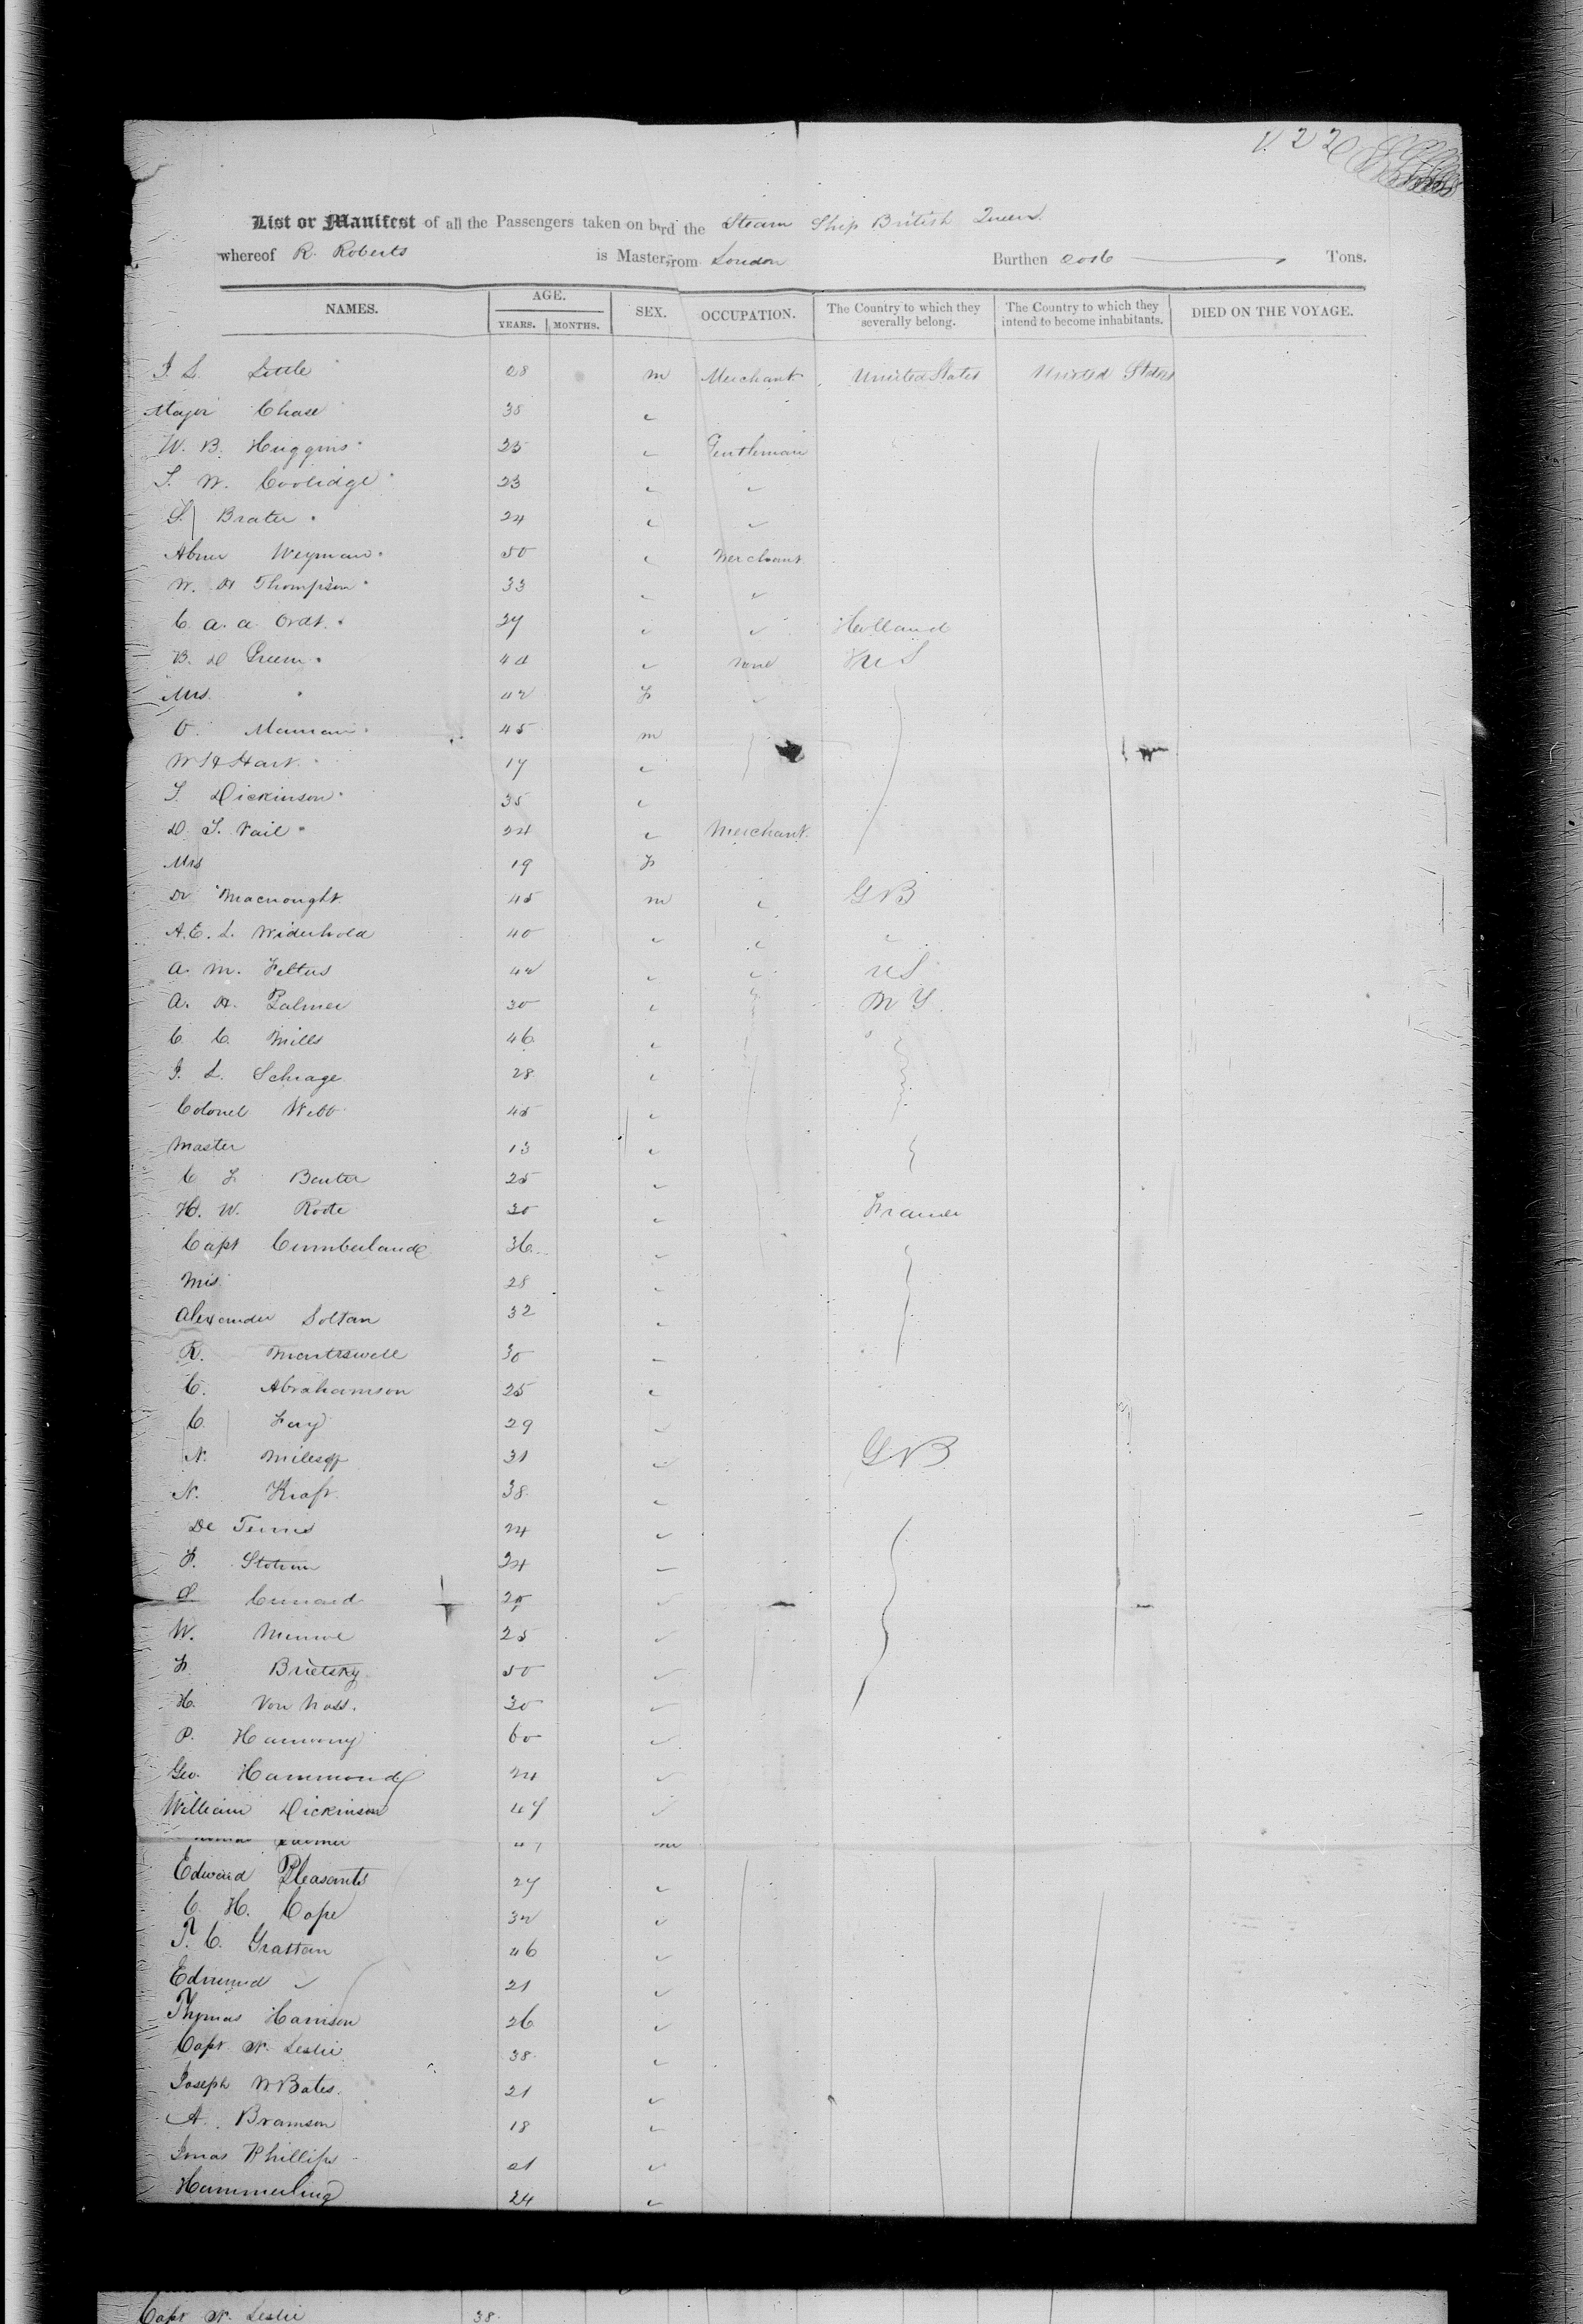 V. 22
List or Manifest of all the Passengers taken on b'rd the Steam Ship British Queen.
whereof R. Roberts is Master, from London Burthen 2016 Tons.
NAMES. AGE. YEARS. MONTHS. SEX. OCCUPATION. The Country to which they severally belong. The Country to which they intend to become inhabitants. DIED ON THE VOYAGE.
J. L. Little 28 m Merchant United States United States
Major Chase 35 "
W. B. Huggins 25 " Gentleman
T. W. Coolidge 23 " "
S. Brater 24 " "
Abner Weyman 50 " Merchant
W. H Thompson 33 " "
C. a. a. Ordt. 27 " " Holland
B. D Green 44 " none U S
Mrs. 42 F "
O. Mauran 45 m
W H Hart 17 "
T. Dickinson 35 "
D. T. Vail 24 " Merchant
Mrs 19 F
Dr Macnought 45 m " G B
A. E. L. Widerhold 40 " " "
A. M. Feltus 42 " " U S
A. H. Palmer 30 " N Y
C. C. Mills 46 "
J. L. Schrage 28 "
Colonel Webb 45 "
Master 13 "
C F Baxter 25 "
H. W. Roote 30 " France
Capt Cumberland 36 "
Mrs 28 "
Alexander Soltan 32 "
R. 30 "
C. Abrahamson 25 "
C. Fay 29 "
N. 31 " G B
N. Kraft 38 "
De 24 "
F. 24 "
Cunard 25 "
W. 25 "
F. Brietsky 50 "
H. Von 30 "
P. Harmony 60 "
Geo. Hammond 24 "
William Dickinson 47 "
Edward Pleasants 27 "
C. H. Cope 32 "
T. C. Grattan 46 "
Edmund " 21 "
Thomas Harrison 26 "
Capt. W. Leslie 38 "
Joseph W Bates. 21 "
A. Bramson 18 "
Jonas Phillips 21 "
Hammerling 24 "
Capt W. Leslie 38